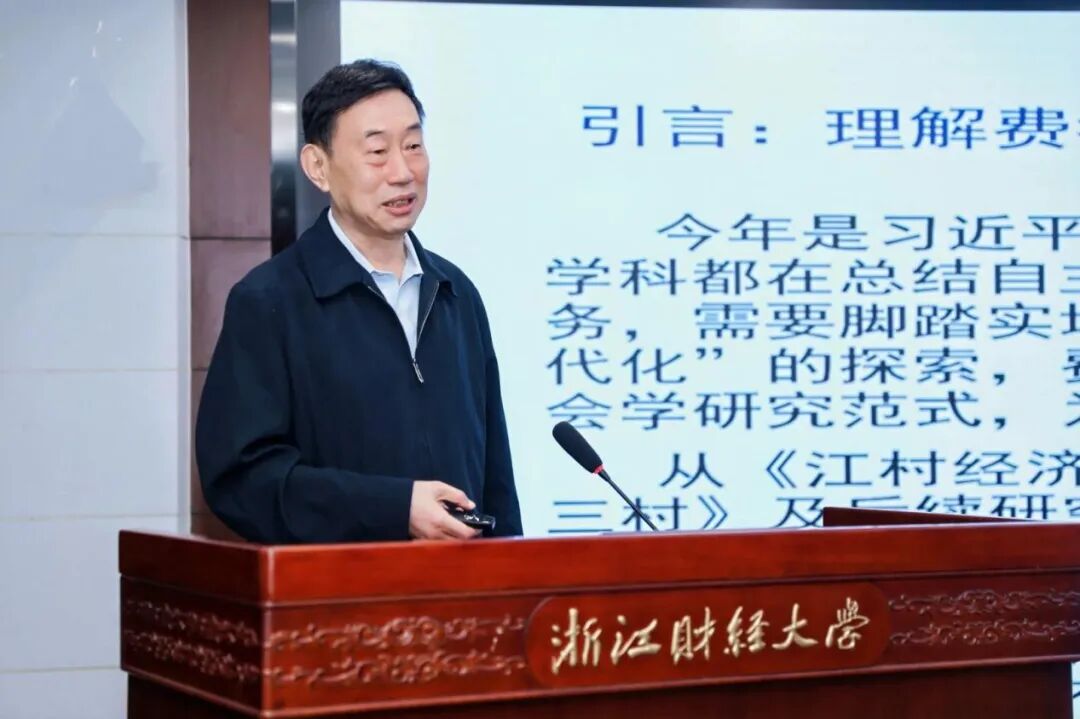 引言：理解费
今年是习近平
学科都在总结自主
务，需要脚踏实地
代化”的探索，
会学研究范式，
从《江村经济
三村》及后续研究
浙江财经大学